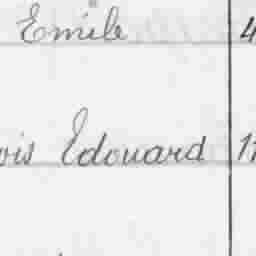 Emile 4
ois Edouard 11